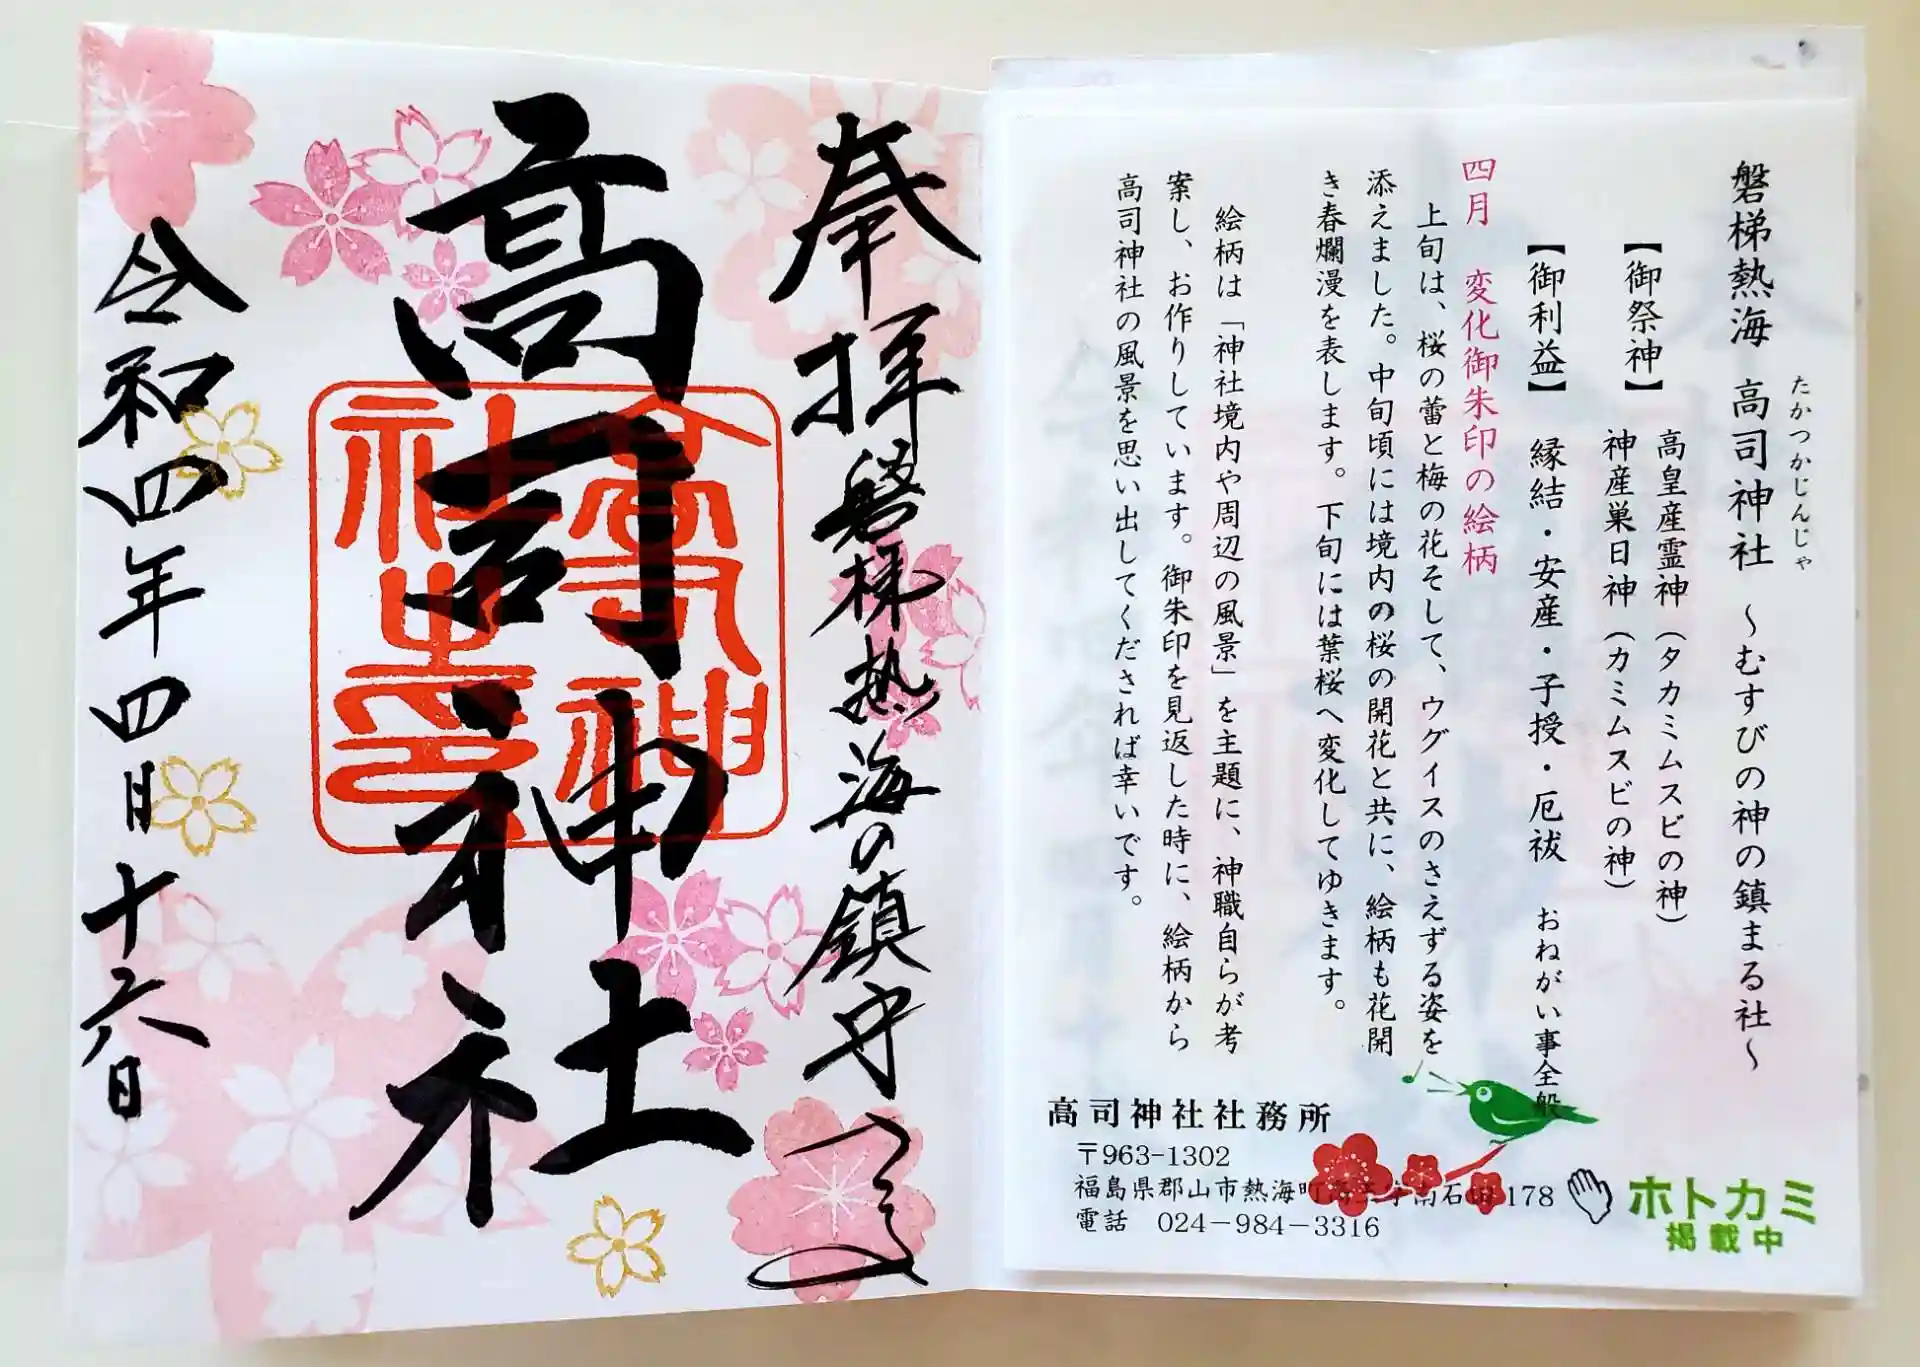 奉拝
磐梯熱海の鎮守
高司神社
高司神
社之印
令和四年四月十六日
磐梯熱海 高司神社 ～むすびの神の鎮まる社～
たかつかじんじゃ
【御祭神】 高皇産霊神(タカミムスビの神)
神産巣日神(カミムスビの神)
【御利益】 縁結・安産・子授・厄祓 おねがい事全般
四月 変化御朱印の絵柄
上旬は、桜の蕾と梅の花そして、ウグイスのさえずる姿を
添えました。中旬頃には境内の桜の開花と共に、絵柄も花開
き春爛漫を表します。下旬には葉桜へ変化してゆきます。
絵柄は「神社境内や周辺の風景」を主題に、神職自らが考
案し、お作りしています。御朱印を見返した時に、絵柄から
高司神社の風景を思い出してくだされば幸いです。
高司神社社務所
〒963-1302
福島県郡山市熱海町 字南石 178
電話 024－984－3316
ホトカミ
掲載中